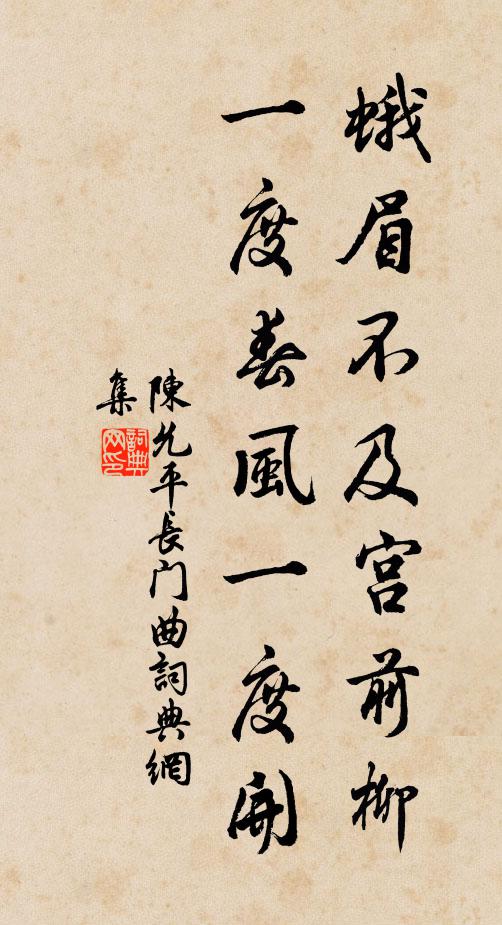 蛾眉不及宫前柳
一度春風一度開
陳允平長门曲詞典網
集
詞典
网印